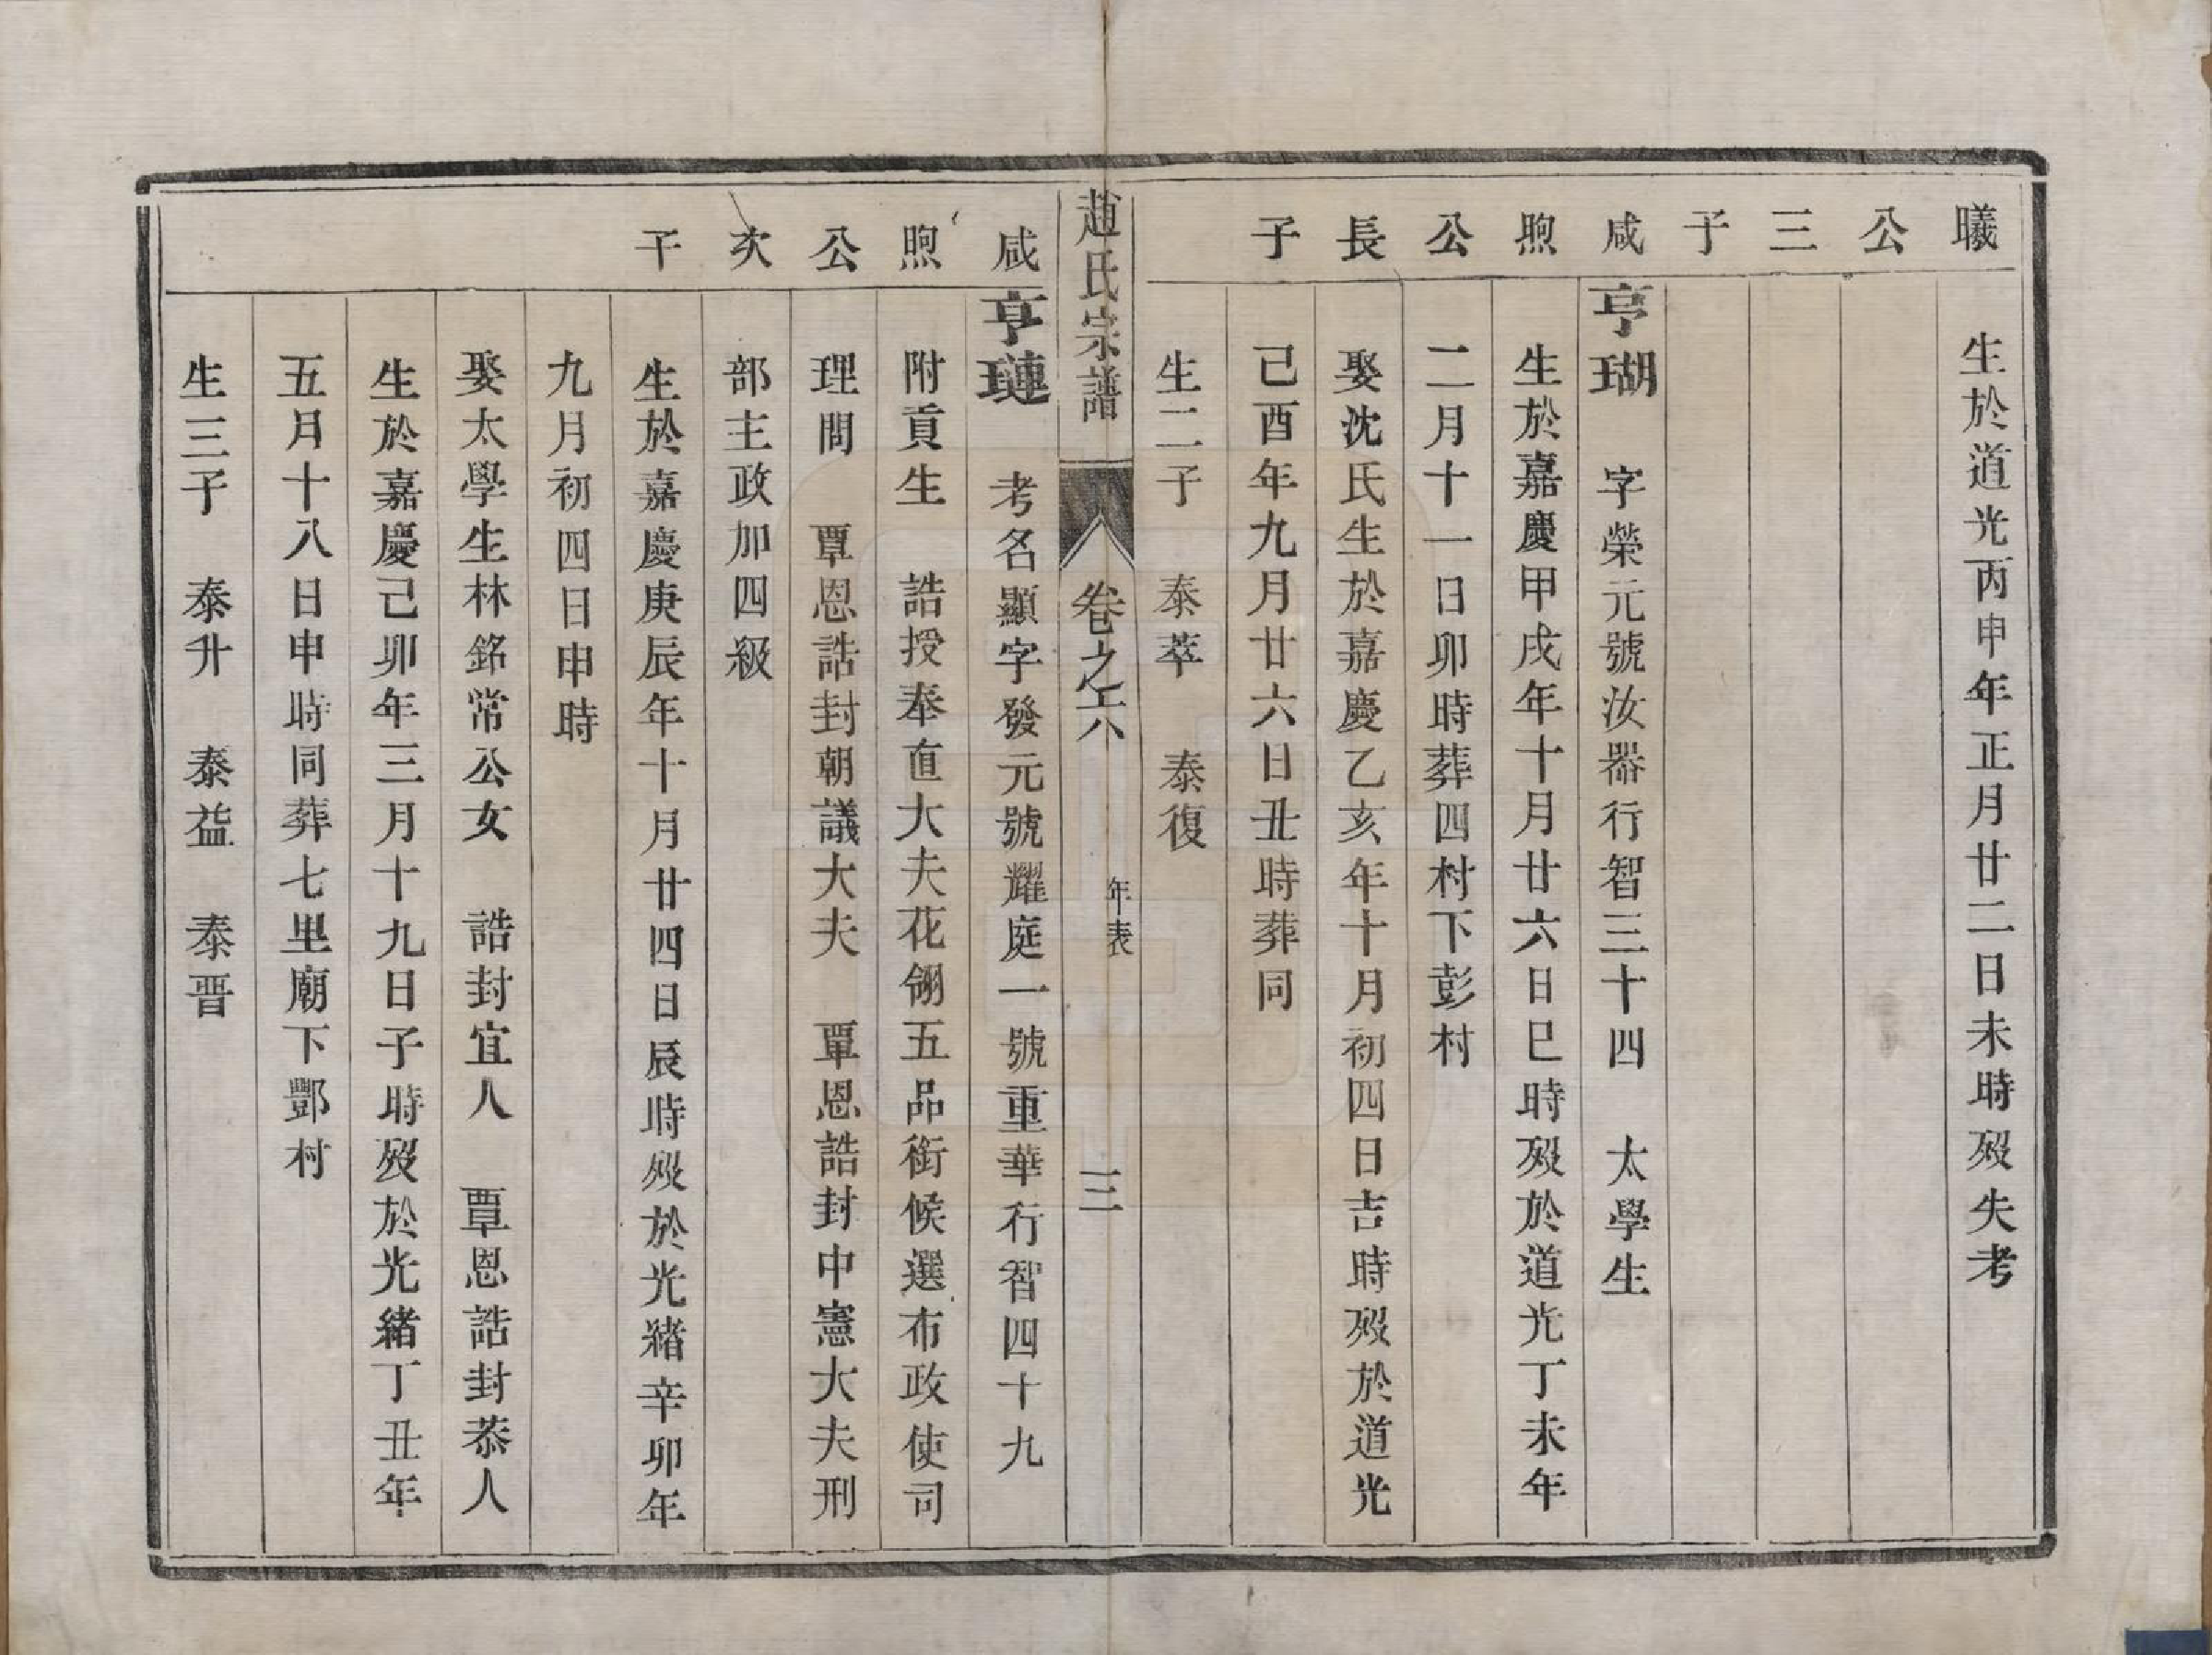 曦公三子
生於道光丙申年正月廿二日未時歿失考
咸煦公長子
亨瑚 字榮元號汝器行智三十四 太學生
生於嘉慶甲戌年十月廿六日巳時歿於道光丁未年
二月十一日卯時葬四村下彭村
娶沈氏生於嘉慶乙亥年十月初四日吉時歿於道光
己酉年九月廿六日丑時葬同
生二子 泰萃 泰復
趙氏宗譜 卷之六 年表 三
咸煦公次子
亨璉 考名顯字發元號耀庭一號重華行智四十九
附貢生 誥授奉直大夫花翎五品銜候選布政使司
理問 覃恩誥封朝議大夫 覃恩誥封中憲大夫刑
部主政加四級
生於嘉慶庚辰年十月廿四日辰時歿於光緒辛卯年
九月初四日申時
娶太學生林銘常公女 誥封宜人 覃恩誥封恭人
生於嘉慶己卯年三月十九日子時歿於光緒丁丑年
五月十八日申時同葬七里廟下酆村
生三子 泰升 泰益 泰晋